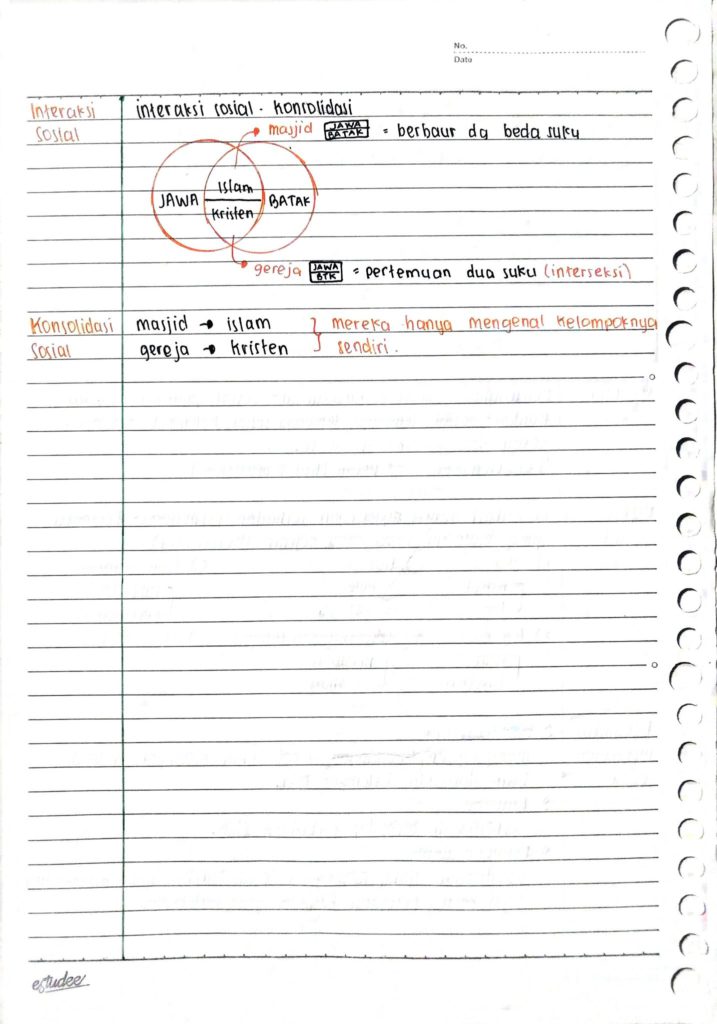 No.
Date
Interaksi interaksi sosial . Konsolidasi
Sosial
masjid JAWA BATAK = berbaur dg beda suku
JAWA Islam BATAK
Kristen
gereja JAWA BTK = pertemuan dua suku (interseksi)
Konsolidasi masjid → islam } mereka hanya mengenal kelompoknya
Sosial gereja → kristen sendiri.
estudee